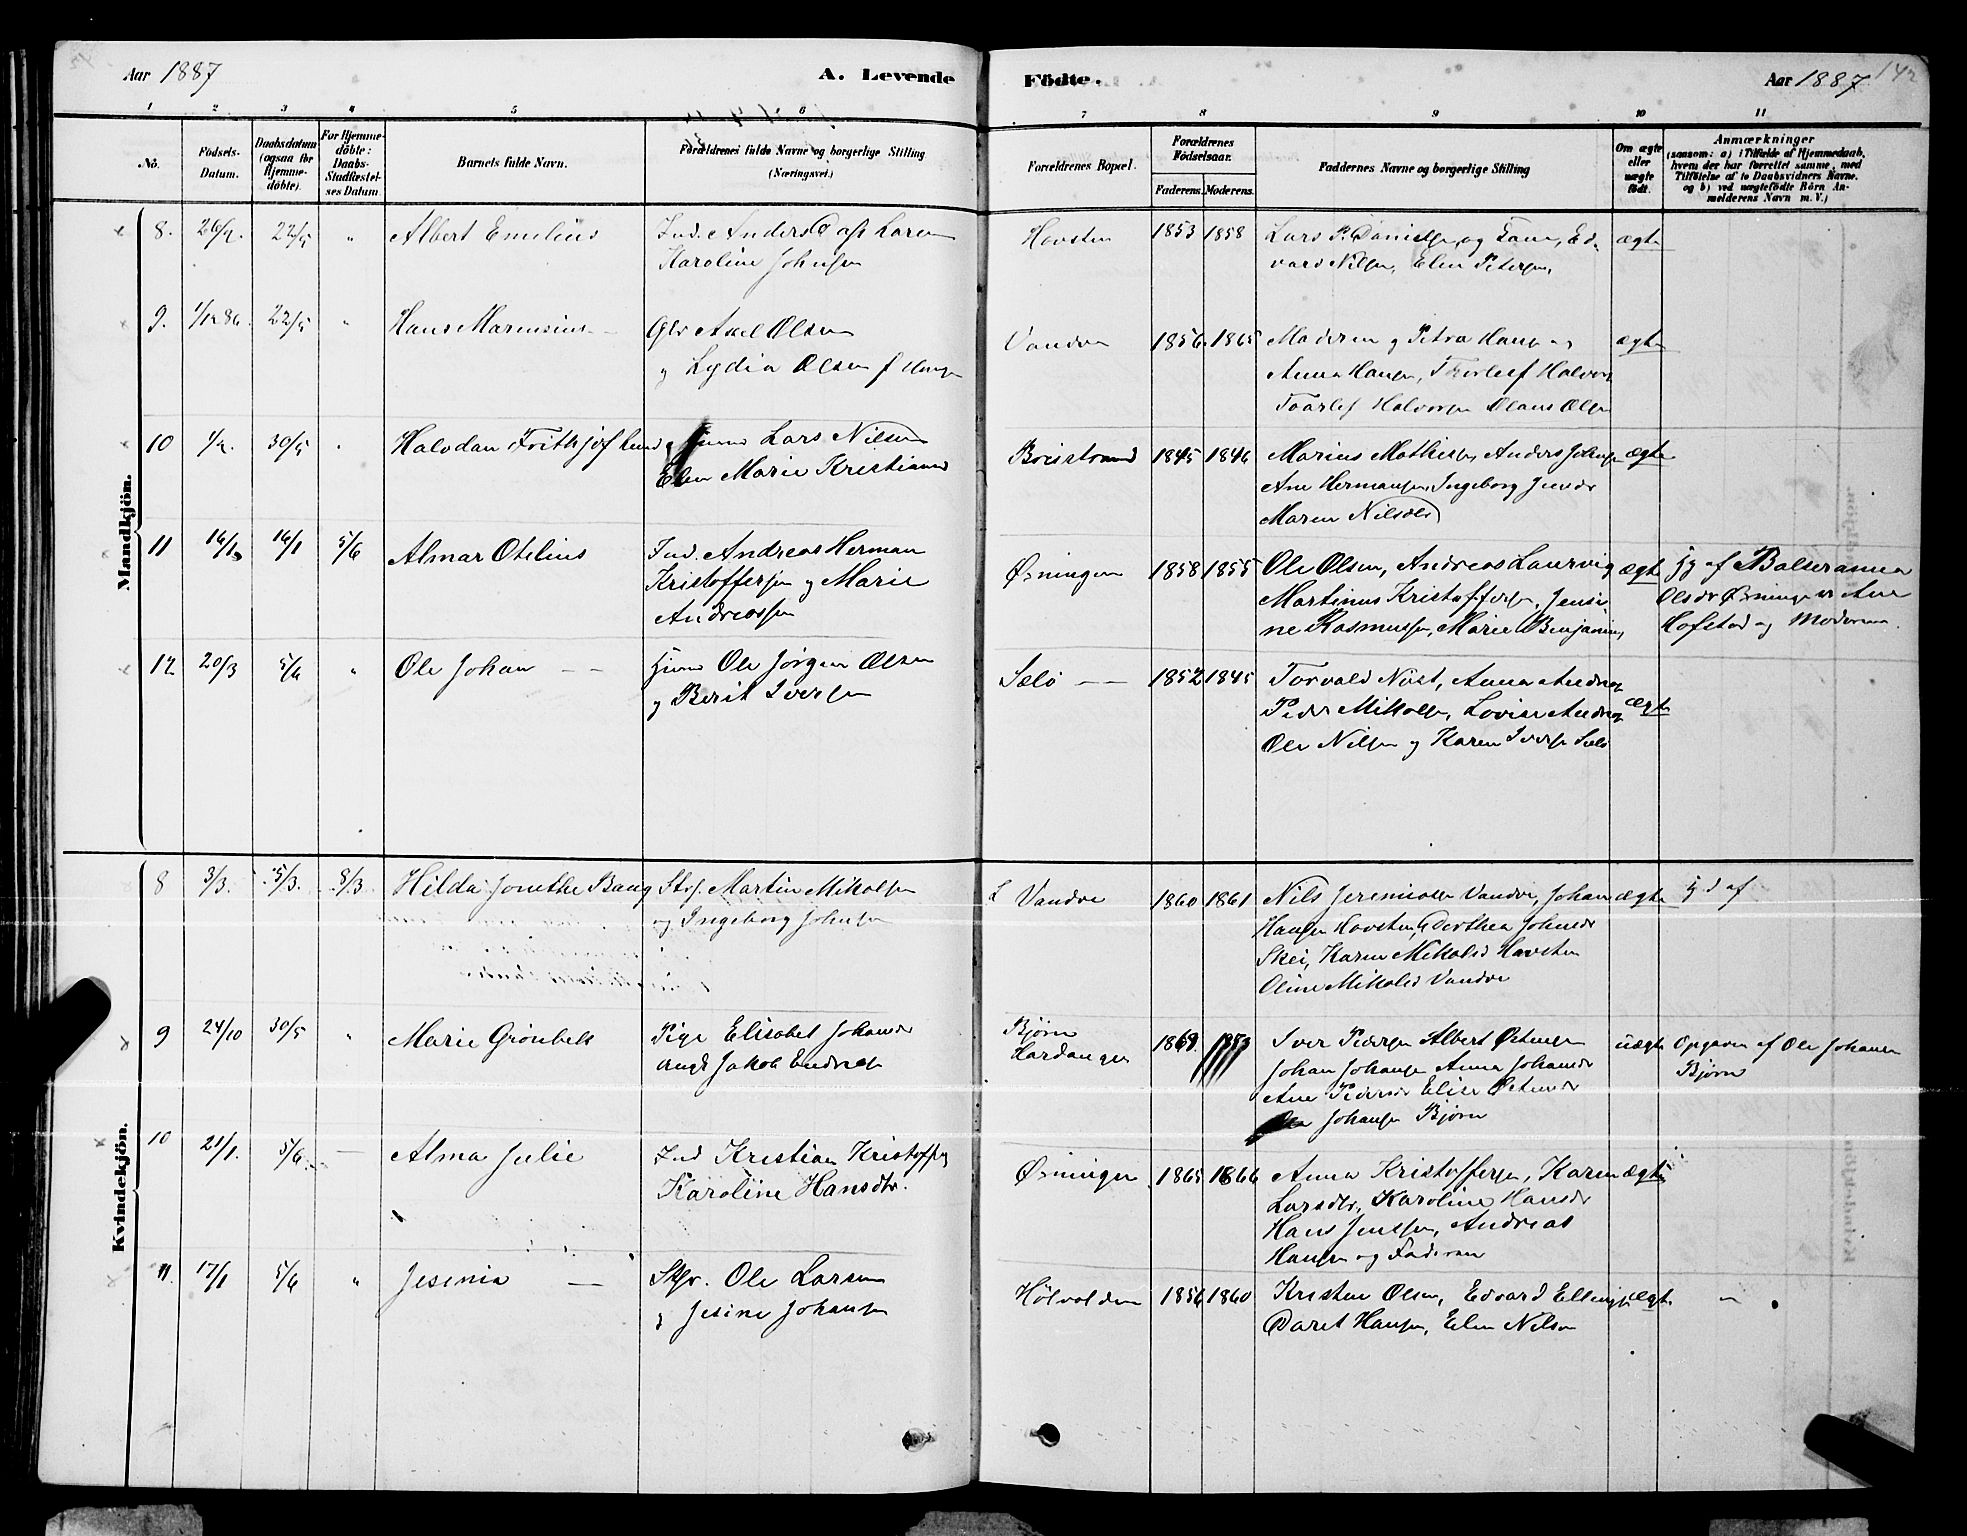 Aar 1887
A. Levende
Födte.
Aar 1887
142
1 2 3 4 5 6 7 8 9 10 11
No.
Födsels-Datum.
Daabsdatum (ogsaa for Hjemme-döbte).
For Hjemme-döbte: Daabs-Stadfæstel-ses Datum
Barnets fulde Navn.
Forældrenes fulde Navne og borgerlige Stilling
(Næringsvei.)
Forældrenes Bopæl.
Forældrenes Födselsaar.
Faderens. Moderens.
Faddernes Navne og borgerlige Stilling
Om ægte eller uægte födt.
Anmærkninger
(saasom: a) i Tilfælde af Hjemmedaab, hvem der har forrettet samme, med Tilföielse af to Daabsvidners Navne, og b) ved uægtefödte Börn An-melderens Navn m. V.)
Mandkjön.
8. 26/2. 22/5 " Albert Emilius
Ind. Anders
Karoline Johnsen
Havsten 1853 1858
Lars P. Danielsen, og Fare, Ed-
vard Nilsen, Elen Petersen,
ægte
9. 1/12 86. 22/5 " Hans Marensius
Gbr Axel Olsen
og Lydia Olsen f Hansen
Vandve 1856. 1865
Moderen og Petra Hansen og
Anna Hansen, Thorleif Halvors
Toarlef Halvorsen Olaus Olsen
ægte
10 1/2. 30/5 " Halvdan Frithjof Lund
Lars Nilsen
Elen Marie Kristians
Breistrand 1845 1846
Marius Mathisen, Anders Johnsen
Ane Hermansen, Ingeborg
Maren Nilsdtr
ægte
11 16/1 16/1 5/6 Almar Otelius
Ind. Andreas Herman
Kristoffersen og Marie
Andreassen
Øsningen 1858 1855
Ole Olsen, Andreas Laurvig
Martinus Kristoffersen, Jensi-
ne Rasmussen, Marie Benjamins
ægte
jg af Balseranna
Olsdr Øsningen v Ane
Hofstad og Moderen
12 20/3 5/6 " Ole Johan
Ole Jørgen Olsen
og Berit Iversen
Sælö 1852 1845
Torvald Nöst, Anna Andreas
Peder Mikalsen, Lovise Andreas
Ole Nilsen og Karen Iversen Sælö
ægte
Kvindekjön.
8 3/3. 5/3. 8/3. Hilda Jonethe Bang
Strf. Martin Mikalsen
og Ingeborg Johnsen
Vandve 1860 1861
Nils Jeremiasen Vandve, Johan
Hansen Havsten, Dorthea Johnsdr
Skei, Karen Mikalsd Havsten
Oline Mikalsd Vandve
ægte
jg d af
9 24/10 30/5 " Marie Grönbek
Pige Elisabet Johansdr
Ungk Jakob Endresen
Bjørn
Hardanger 1869. 1853
Iver Pedersen Albert Østensen
Johan Johansen Anna Johansdr
Ane Pedersdr Elise
Ole Johansen Bjørn
uægte
Opgaven af Ole Johansen
Bjørn
10 21/1. 5/6 — Alma Julie
Ind Kristian Kristoffers
Karoline Hansdtr.
Øsningen 1865 1866
Anna Kristoffersen, Karen
Larsdtr, Karoline Hansdr
Hans Jenssen, Andreas
Hansen og Faderen
ægte
11. 17/1 5/6 " Jesenia
Ole Larsen
og Jesine Johansen
Hölvolden 1856 1860
Kristen Olsen, Edvard Ellingsen
Daret Hansen, Elen Nilsen
ægte